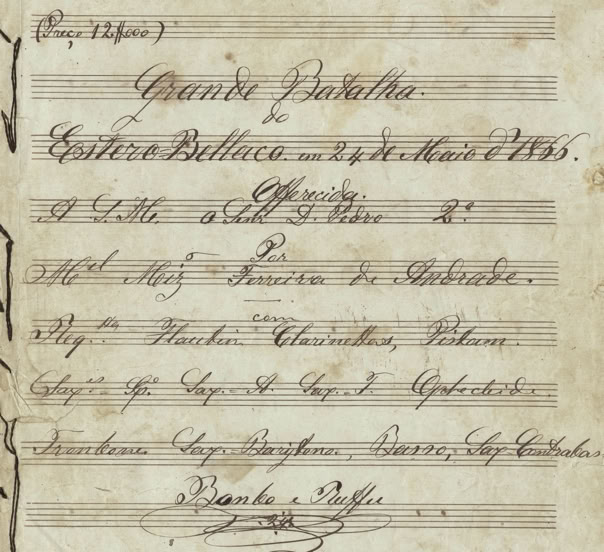 (Preço 12$000)
Grande Batalha.
do
Estero=Bellaco. em 24 de Maio d' 1866.
Offerecida.
A S. M. o Senr D. Pedro 2.º
Por
Mel Miz Ferreira de Andrade.
com
Req.ta Flautin Clarinettas, Pistam.
Sax.es Sp.o Sax.-A. Sax.-T. Ophecleide.
Trombone. Sax-Barytono, Basso, Sax-Contrabas
Bombo e Ruffu